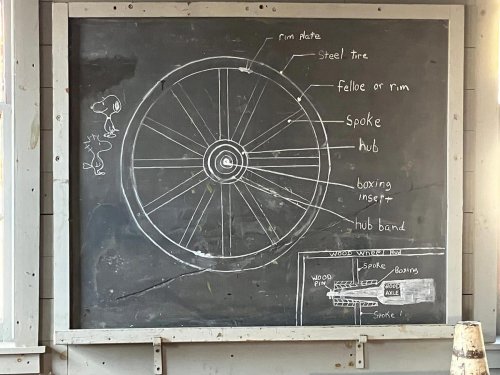 rim plate
Steel tire
felloe or rim
Spoke
hub
boxing
insert
hub band
WOOD WHEEL HUB
Spoke
Boxing
WOOD
PIN
WOOD
AXLE
Spoke